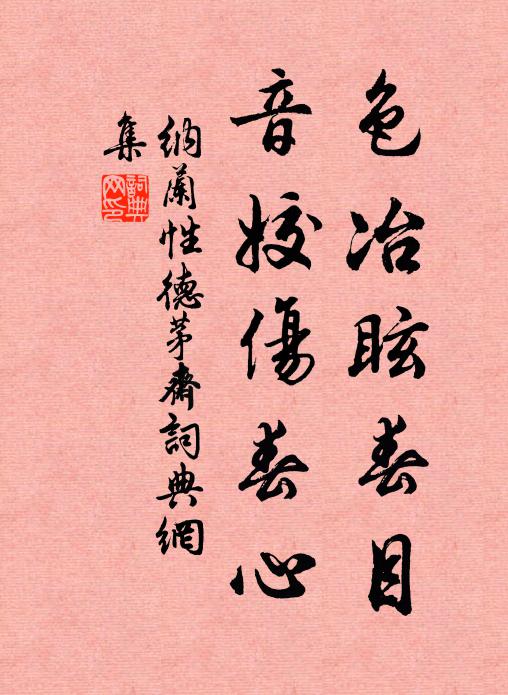 色冶眩春目
音姣傷春心
納蘭性德茅齋詞典網
集
詞典
网印